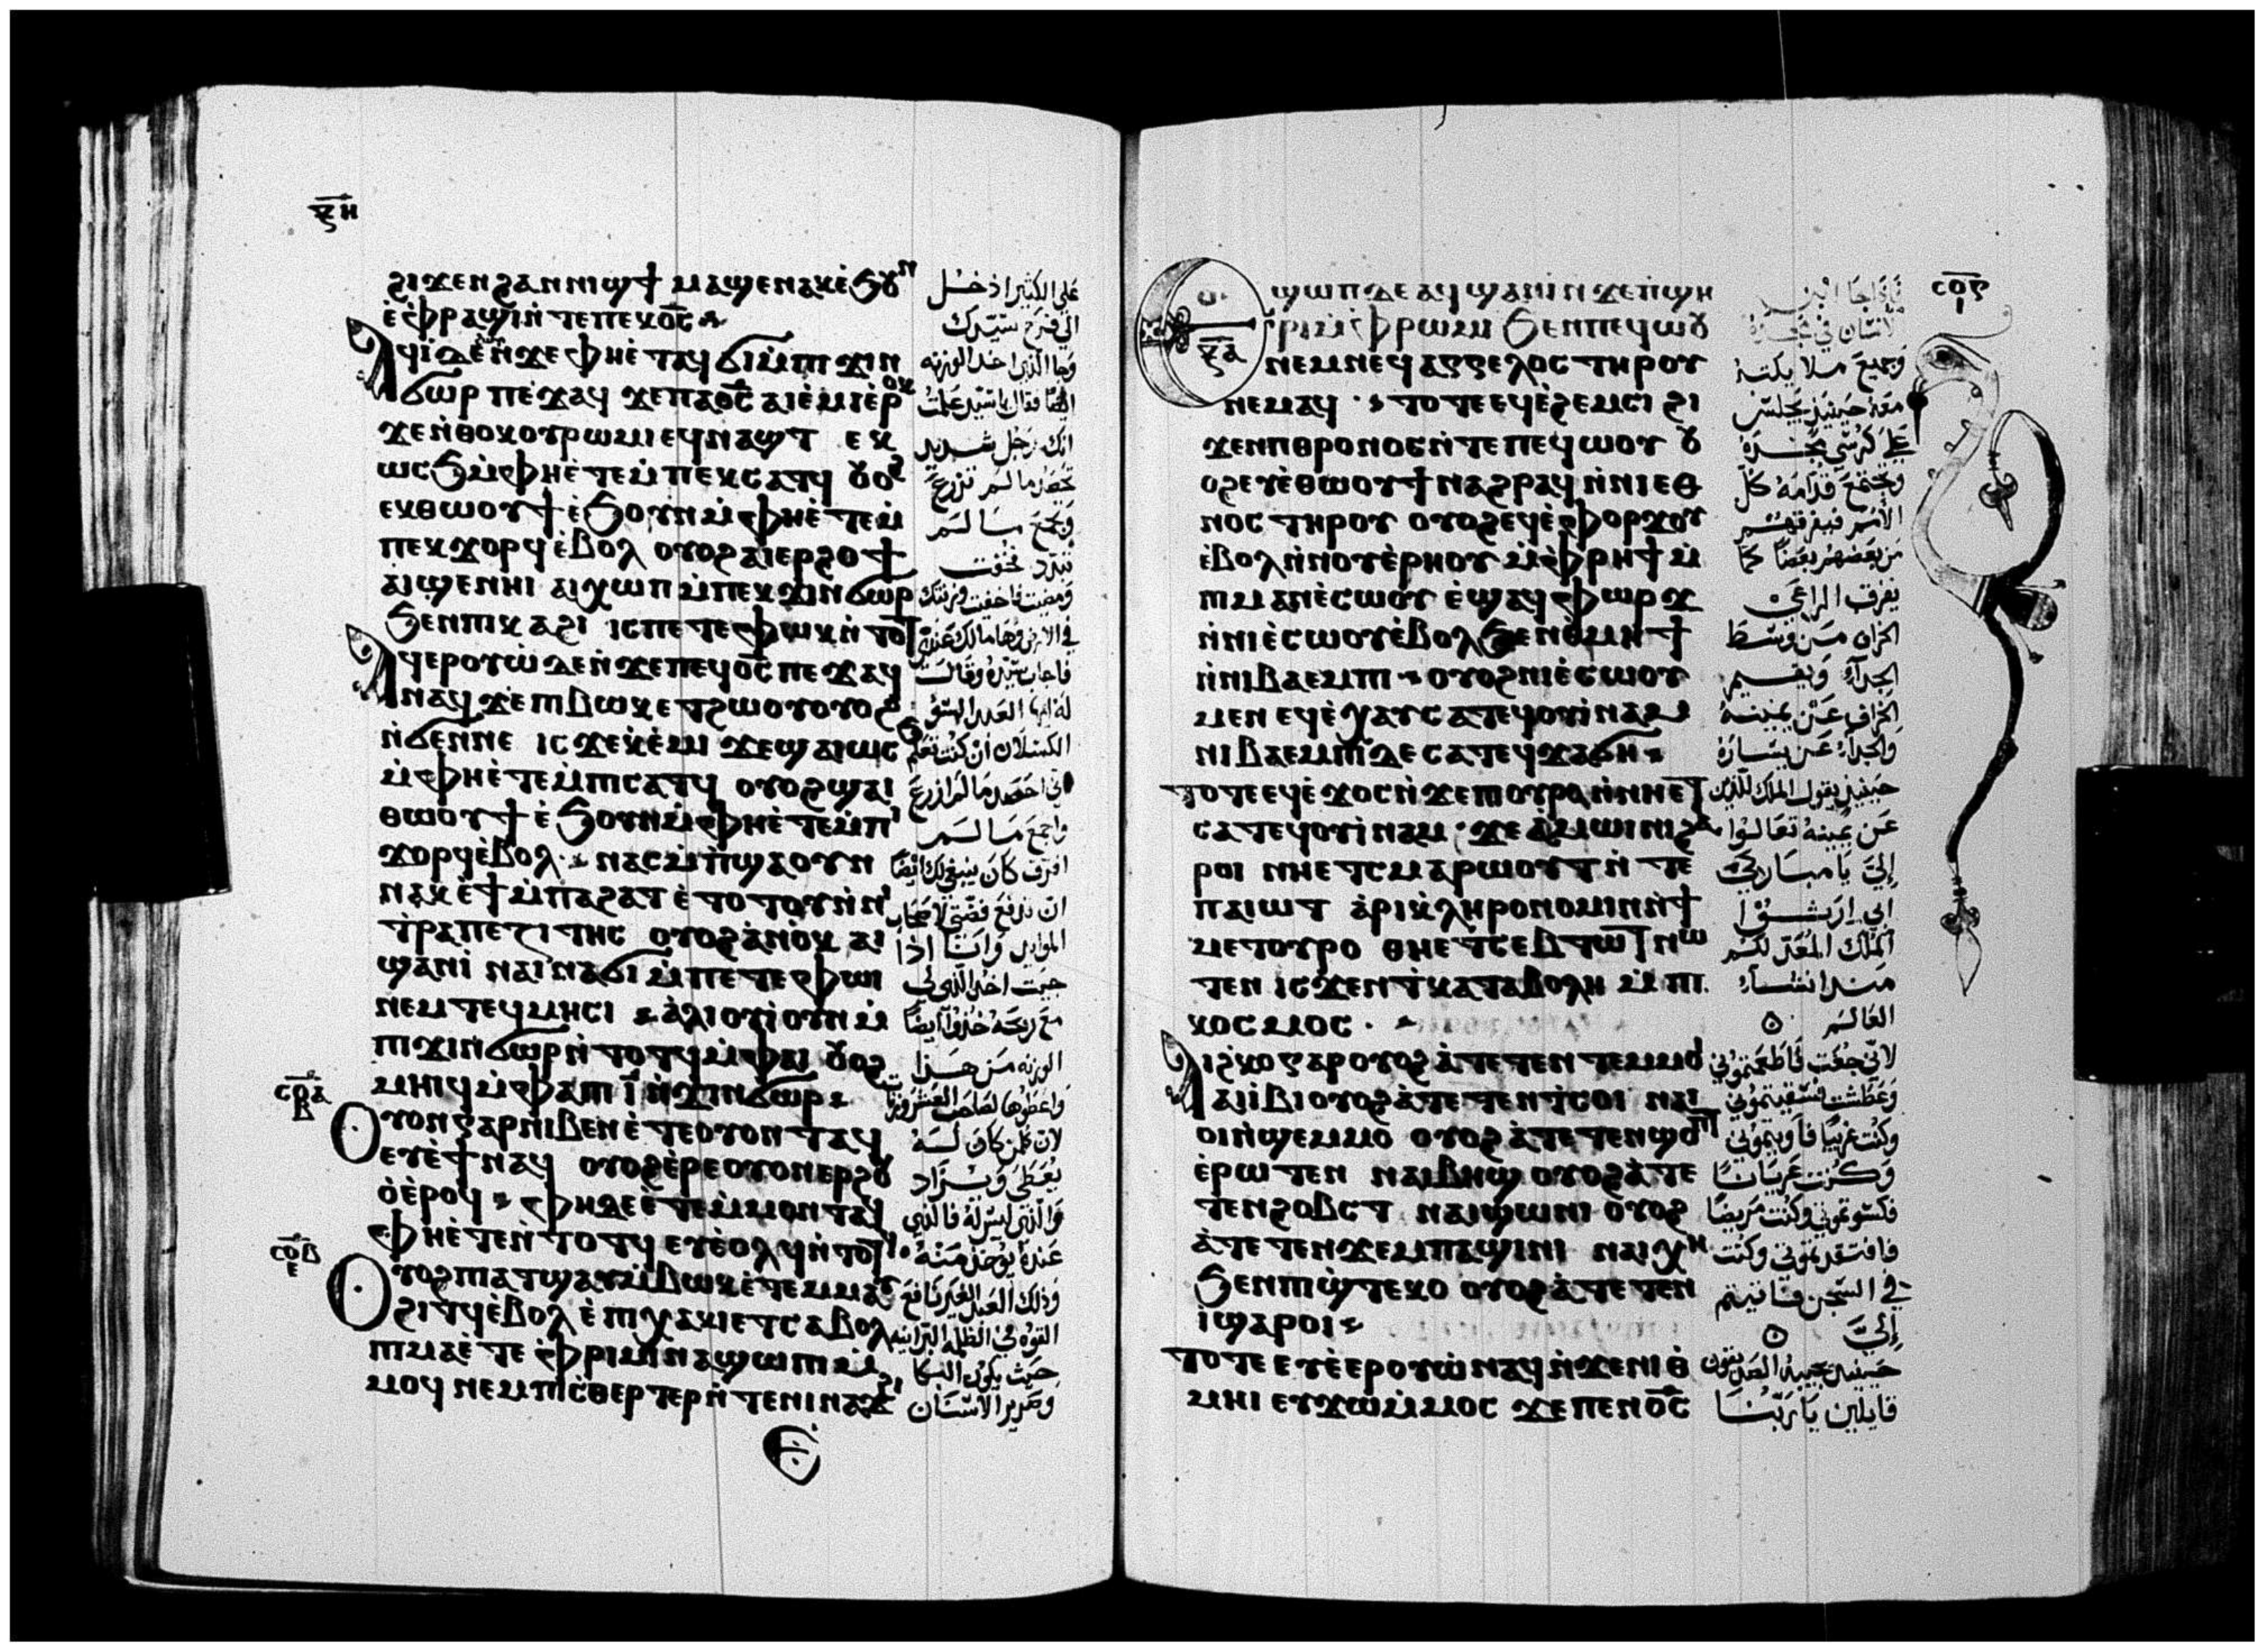 ⲝⲏ
ϩⲓϫⲉⲛ ϩⲁⲛⲛⲓϣϯ ⲙⲁϣⲉⲛⲁⲕ ⲉ̀ϧⲟⲩⲛ
ⲉ̀ⲫⲣⲁϣⲓ ⲛ̀ⲧⲉ ⲡⲉⲕⲟ̅ⲥ̅
ⲁϥⲓ̀ ⲇⲉ ⲛ̀ϫⲉ ⲫⲏⲉ̀ⲧⲁϥϭⲓ ⲙ̀ⲡⲓϫⲓⲛ
ϭⲱⲣ ⲡⲉϫⲁϥ ϫⲉ ⲡⲁⲟ̅ⲥ̅ ⲁⲓⲉ̀ⲙⲓ ⲉ̀ⲣⲟⲕ
ϫⲉ ⲛ̀ⲑⲟⲕ ⲟⲩⲣⲱⲙⲓ ⲉϥⲛⲁϣⲧ ⲉⲕ
ⲱⲥϧ ⲙ̀ⲫⲏⲉ̀ⲧⲉ ⲙ̀ⲡⲉⲕⲥⲁⲧϥ ⲟⲩⲟϩ
ⲉⲕⲑⲱⲟⲩϯ ⲉ̀ϧⲟⲩⲛ ⲙ̀ⲫⲏⲉ̀ⲧⲉ ⲙ̀
ⲡⲉⲕϫⲟⲣϥ ⲉ̀ⲃⲟⲗ ⲟⲩⲟϩ ⲁⲓⲉⲣϩⲟϯ
ⲁⲓϣⲉⲛⲏⲓ ⲁⲓⲭⲱⲡ ⲙ̀ⲡⲉⲕϫⲓⲛϭⲱⲣ
ϧⲉⲛ ⲡⲓⲕⲁϩⲓ ⲓⲥ ⲡⲉⲧⲉ ⲫⲱⲕ ⲛ̀ⲧⲟⲧ
ⲁϥⲉⲣⲟⲩⲱ̀ ⲇⲉ ⲛ̀ϫⲉ ⲡⲉϥⲟ̅ⲥ̅ ⲡⲉϫⲁϥ
ⲛⲁϥ ϫⲉ ⲡⲓⲃⲱⲕ ⲉⲧϩⲱⲟⲩ ⲟⲩⲟϩ
ⲛ̀ϭⲉⲛⲛⲉ ⲓⲥϫⲉ ⲕⲉ̀ⲙⲓ ϫⲉ ϣⲁⲓⲱⲥϧ
ⲙ̀ⲫⲏⲉ̀ⲧⲉ ⲙ̀ⲡⲓⲥⲁⲧϥ ⲟⲩⲟϩ ϣⲁⲓ
ⲑⲱⲟⲩϯ ⲉ̀ϧⲟⲩⲛ ⲙ̀ⲫⲏⲉ̀ⲧⲉ ⲙ̀ⲡⲓ
ϫⲟⲣϥ ⲉ̀ⲃⲟⲗ ⲛⲁⲥⲙ̀ⲡϣⲁ ⲟⲩⲛ
ⲛⲁⲕ ⲉ̀ϯ ⲙ̀ⲡⲁϩⲁⲧ ⲉ̀ⲧⲟⲧⲟⲩ ⲛ̀ⲛⲓ
ⲧ̀ⲣⲁⲡⲉⲍⲓⲧⲏⲥ ⲟⲩⲟϩ ⲁ̀ⲛⲟⲕ ⲁⲓ
ϣⲁⲛⲓ̀ ⲛⲁⲓⲛⲁϭⲓ ⲙ̀ⲡⲉⲧⲉ ⲫⲱⲓ
ⲛⲉⲙ ⲧⲉϥⲙⲏⲥⲓ ⲁ̀ⲗⲓⲟⲩⲓ̀ ⲟⲩⲛ ⲙ̀
ⲡⲓϫⲓⲛϭⲱⲣ ⲛ̀ⲧⲟⲧϥ ⲙ̀ⲫⲁⲓ ⲟⲩⲟϩ
ⲙⲏⲓϥ ⲙ̀ⲫⲁ ⲡⲓ ⲓ̅ ⲛ̀ϫⲓⲛϭⲱⲣ
ⲥⲟⲁ
ⲃ
ⲟⲩⲟⲛ ⲅⲁⲣ ⲛⲓⲃⲉⲛ ⲉ̀ⲧⲉ ⲟⲩⲟⲛ ⲧⲁϥ
ⲉⲩⲉ̀ϯ ⲛⲁϥ ⲟⲩⲟϩ ⲉ̀ⲣⲉ ⲟⲩⲟⲛ ⲉⲣϩⲟⲩ
ⲟ̀ ⲉ̀ⲣⲟϥ ⲫⲏ ⲇⲉ ⲉ̀ⲧⲉ ⲙ̀ⲙⲟⲛ ⲧⲁϥ
ⲫⲏⲉ̀ⲧⲉⲛ̀ⲧⲟⲧϥ ⲉⲩⲉ̀ⲟⲗϥ ⲛ̀ⲧⲟⲧϥ
ⲥⲟⲃ
ⲉ
ⲟⲩⲟϩ ⲡⲓⲁⲧϣⲁⲩ ⲙ̀ⲃⲱⲕ ⲉ̀ⲧⲉⲙⲙⲁⲩ
ϩⲓⲧϥ ⲉ̀ⲃⲟⲗ ⲉ̀ⲡⲓⲭⲁⲕⲓ ⲉⲧⲥⲁⲃⲟⲗ
ⲡⲓⲙⲁ ⲉ̀ⲧⲉ ⲫ̀ⲣⲓⲙⲓ ⲛⲁϣⲱⲡⲓ ⲙ̀
ⲙⲟϥ ⲛⲉⲙ ⲡⲓⲥ̀ⲑⲉⲣⲧⲉⲣ ⲛ̀ⲧⲉ ⲛⲓⲛⲁϫϩⲓ
علي الكثير ادخل
الي فرح سيدك
وجا الذي اخد الوزنه
فقال يا سيد علمت
انك رجل شديد
تحصد ما لم تزرع
وتجمع ما لم
تبدد فخفت
ومضيت فاخفيت وزنتك
في الارض وها مالك عندي
فاجاب سيده وقال
له ايها العبد السو
الكسلان ان كنت تعلم
اني احصد ما لم ازرع
واجمع ما لم
افرق كان ينبغي لك ايضا
ان تدفع فضتي لاصحاب
الموايد وانا اذا
جيت اخد الذي لي
مع ربحه خذوا ايضا
الوزنه من هذا
واعطوها لصاحب العشر وزنات
لان كل من كان له
يعطي ويزاد
والذي ليس له فالذي
عنده يوخذ منه
وذلك العبد الغير نافع
القوه في الظلمه البرانيه
حيث يكون البكا
وصرير الاسنان
ⲥⲟⲅ
ⲓ
ⲝⲁ
ⲉϣⲱⲡ ⲇⲉ ⲁϥϣⲁⲛⲓ̀ ⲛ̀ϫⲉ ⲡ̀ϣⲏ
ⲣⲓ ⲙ̀ⲫⲣⲱⲙⲓ ϧⲉⲛ ⲡⲉϥⲱⲟⲩ
ⲛⲉⲙ ⲛⲉϥⲁⲅⲅⲉⲗⲟⲥ ⲧⲏⲣⲟⲩ
ⲛⲉⲙⲁϥ ⲧⲟⲧⲉ ⲉϥⲉ̀ϩⲉⲙⲥⲓ ϩⲓ
ϫⲉⲛ ⲡⲓⲑⲣⲟⲛⲟⲥ ⲛ̀ⲧⲉ ⲡⲉϥⲱⲟⲩ ⲟⲩ
ⲟϩ ⲉⲩⲉ̀ⲑⲱⲟⲩϯ ⲛⲁϩⲣⲁϥ ⲛ̀ⲛⲓⲉⲑ
ⲛⲟⲥ ⲧⲏⲣⲟⲩ ⲟⲩⲟϩ ⲉϥⲉ̀ⲫⲟⲣϫⲟⲩ
ⲉ̀ⲃⲟⲗ ⲛ̀ⲛⲟⲩⲉ̀ⲣⲏⲟⲩ ⲙ̀ⲫ̀ⲣⲏϯ ⲙ̀
ⲡⲓⲙⲁⲛⲉ̀ⲥⲱⲟⲩ ⲉ̀ϣⲁϥⲫⲱⲣϫ
ⲛ̀ⲛⲓⲉ̀ⲥⲱⲟⲩ ⲉ̀ⲃⲟⲗ ϧⲉⲛ ⲑⲙⲏϯ
ⲛ̀ⲛⲓⲃⲁⲉⲙⲡⲓ ⲟⲩⲟϩ ⲛⲓⲉ̀ⲥⲱⲟⲩ
ⲙⲉⲛ ⲉϥⲉ̀ⲭⲁⲩ ⲥⲁⲧⲉϥⲟⲩⲓ̀ⲛⲁⲙ
ⲛⲓⲃⲁⲉⲙⲡⲓ ⲇⲉ ⲥⲁⲧⲉϥϫⲁϭⲏ
ⲧⲟⲧⲉ ⲉϥⲉ̀ϫⲟⲥ ⲛ̀ϫⲉ ⲡⲓⲟⲩⲣⲟ ⲛ̀ⲛⲏⲉⲧ
ⲥⲁⲧⲉϥⲟⲩⲓ̀ⲛⲁⲙ ϫⲉ ⲁ̀ⲙⲱⲓⲛⲓ ϩⲁ
ⲣⲟⲓ ⲛⲏⲉⲧⲥⲙⲁⲣⲱⲟⲩⲧ ⲛ̀ⲧⲉ
ⲡⲁⲓⲱⲧ ⲁ̀ⲣⲓⲕ̀ⲗⲏⲣⲟⲛⲟⲙⲓⲛ ⲛ̀ϯ
ⲙⲉⲧⲟⲩⲣⲟ ⲑⲏⲉⲧⲥⲉⲃⲧⲱⲧ ⲛⲱ
ⲧⲉⲛ ⲓⲥϫⲉⲛ ⲧ̀ⲕⲁⲧⲁⲃⲟⲗⲏ ⲙ̀ⲡⲓ
ⲕⲟⲥⲙⲟⲥ
ⲁⲓϩ̀ⲕⲟ ⲅⲁⲣ ⲟⲩⲟϩ ⲁ̀ⲧⲉⲧⲉⲛⲧⲉⲙⲙⲟⲓ
ⲁⲓⲓ̀ⲃⲓ ⲟⲩⲟϩ ⲁ̀ⲧⲉⲧⲉⲛⲧ̀ⲥⲟⲓ ⲛⲁⲓ
ⲟⲓ ⲛ̀ϣⲉⲙⲙⲟ ⲟⲩⲟϩ ⲁ̀ⲧⲉⲧⲉⲛϣⲟⲡⲧ
ⲉ̀ⲣⲱⲧⲉⲛ ⲛⲁⲓⲃⲏϣ ⲟⲩⲟϩ ⲁ̀ⲧⲉ
ⲧⲉⲛϩⲟⲃⲥⲧ ⲛⲁⲓϣⲱⲛⲓ ⲟⲩⲟϩ
ⲁ̀ⲧⲉⲧⲉⲛϫⲉⲙⲡⲁϣⲓⲛⲓ ⲛⲁⲓⲭⲏ
ϧⲉⲛ ⲡⲓϣ̀ⲧⲉⲕⲟ ⲟⲩⲟϩ ⲁ̀ⲧⲉⲧⲉⲛ
ⲓ̀ ϣⲁⲣⲟⲓ
ⲧⲟⲧⲉ ⲉⲩⲉ̀ⲉⲣⲟⲩⲱ̀ ⲛⲁϥ ⲛ̀ϫⲉ ⲛⲓⲑ̀
ⲙⲏⲓ ⲉⲩϫⲱ ⲙ̀ⲙⲟⲥ ϫⲉ ⲡⲉⲛⲟ̅ⲥ̅
فاذا جا ابن
الانسان في مجده
وجميع ملايكته
معه حينيذ يجلس
على كرسي مجده
وتجتمع قدامه كل
الامم فيفرقهم
من بعضهم بعضا كما
يفرق الراعي
الخراف من وسط
الجدآ ويقيم
الخراف عن يمينه
والجدآ عن يساره
حينيذ يقول الملك للذين
عن يمينه تعالوا
إليّ يا مباركي
ابي ارثوا
الملك المعد لكم
منذ انشاء
العالم
لاني جعت فاطعمتموني
وعطشت فسقيتموني
وكنت غريبا فآويتموني
وكنت عريانا
فكسوتموني وكنت مريضا
فافتقدتموني وكنت
في السجن فاتيتم
إليّ
حينيذ يجيبه الصديقون
قايلين يا ربنا